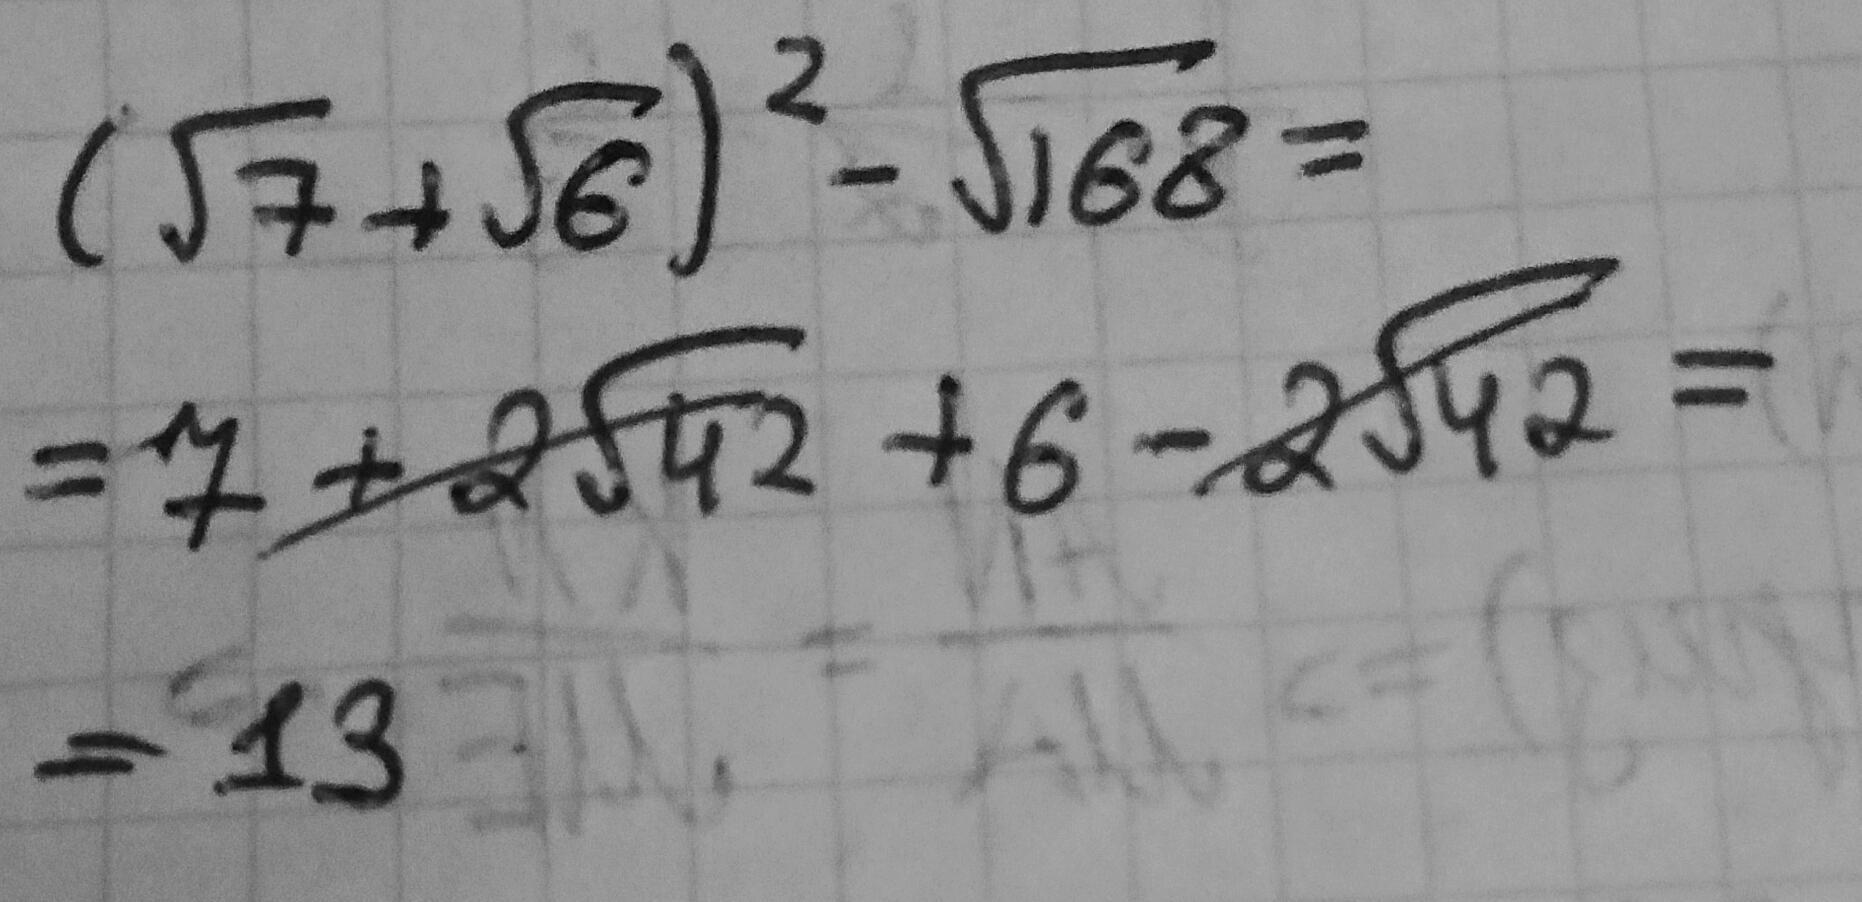 (√7+√6)² - √168 =
= 7 + 2√42 + 6 - 2√42 =
= 13